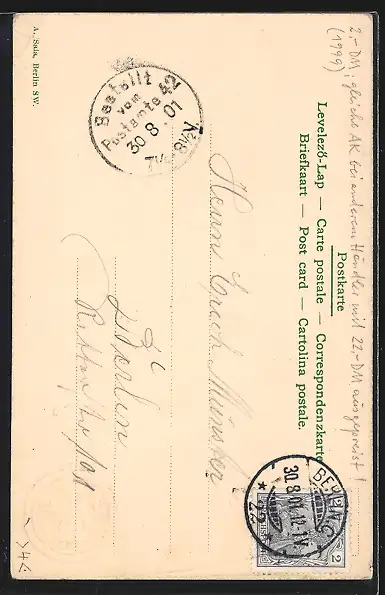 2,- DM, gleiche AK bei anderem Händler mit 22,- DM ausgepreist!
(1999)
Postkarte
Levelező-Lap — Carte postale — Correspondenzkarte
Briefkaart — Post card — Cartolina postale.
BERLIN C
30.8.01.12-1V.
* 22
2
Bestellt
vom
Postamte 42
30.8.01
7¼-8½V
Herrn Erich Münster
Berlin
A. Sala, Berlin SW.